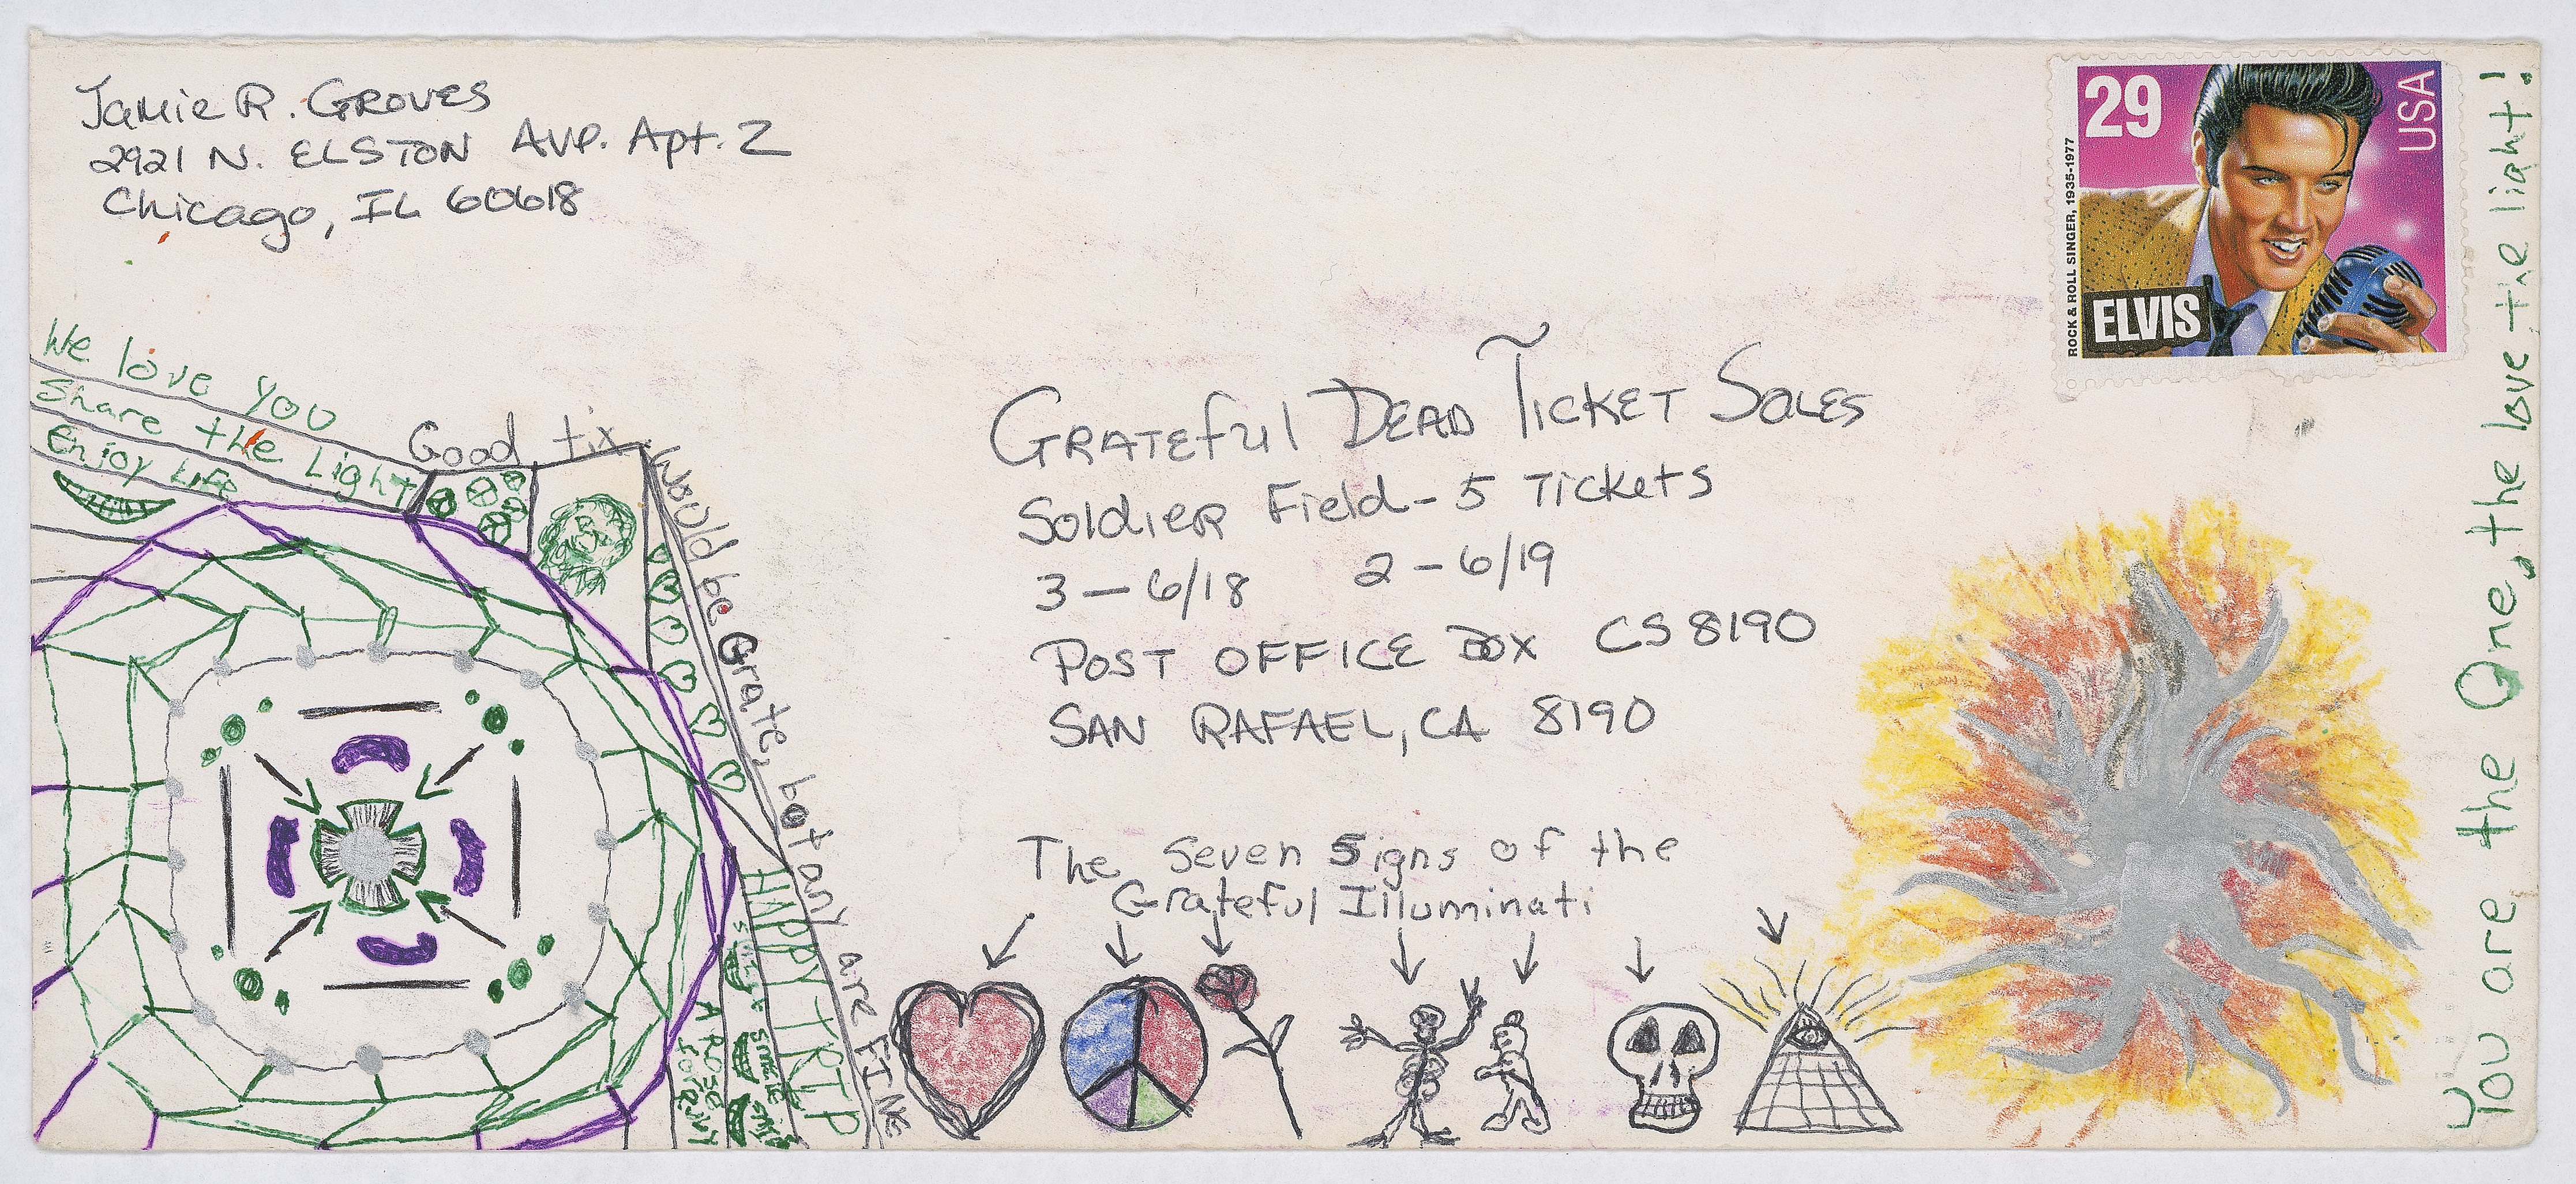 Jamie R. GROVES
2921 N. ELSTON Ave. Apt. 2
Chicago, IL 60618
29
USA
ROCK & ROLL SINGER, 1935-1977
ELVIS
We love you
Share the Light
Enjoy Life
Good tix
would be Grate, bot any are FINE
HAPPY TRIP
GRATEfUl DEAD TICKET SALES
Soldier Field - 5 Tickets
3 - 6/18 2 - 6/19
POST OFFICE BOX CS 8190
SAN RAFAEL, CA 8190
The Seven Signs of the
Grateful Illuminati
You are the One, the love the light!
SMILE SMILE SMILE
A ROSE